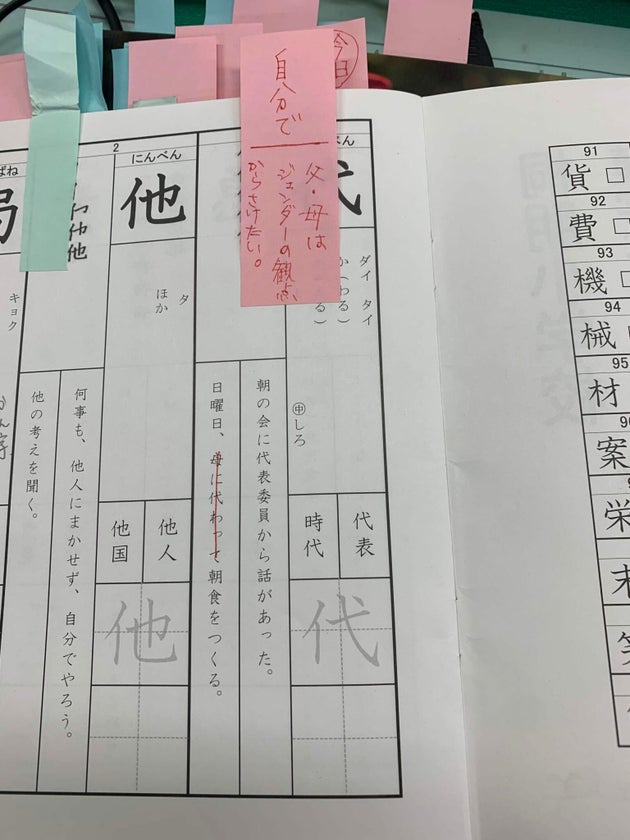 今日
自分で
父・母は
ジェンダーの観点
からさけたい。
代
ダイ タイ
か(わる)
る)
㊥しろ
代表
時代
代
朝の会に代表委員から話があった。
日曜日、母に代わって朝食をつくる。
2
にんべん
他
タ
ほか
他人
他国
他
何事も、他人にまかせず、自分でやろう。
他の考えを聞く。
仁
仲
他
ばね
局
キョク
91
貨
92
費
93
機
94
械
95
材
案
栄
末